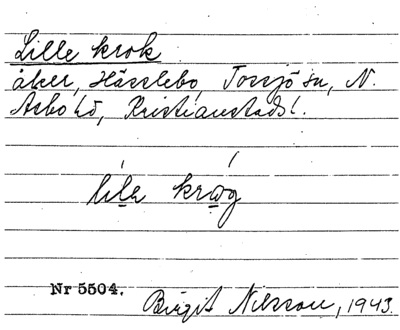 Lille krok
åker, Hässlebo, Tossjö sn, N.
Åsbo hd, Kristianstads l.
lilɐ krɷg
Nr 5504.
Birgit Nilsson, 1943.